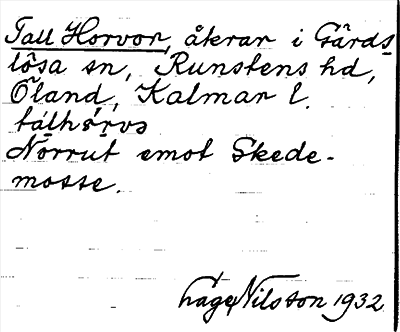 Tall Horvor, åkrar i Gårds-
lösa sn, Runstens hd,
Öland, Kalmar l.
tálhs̥rvs
Norrut emot Skede-
mosse.
Åge Nilsson 1932